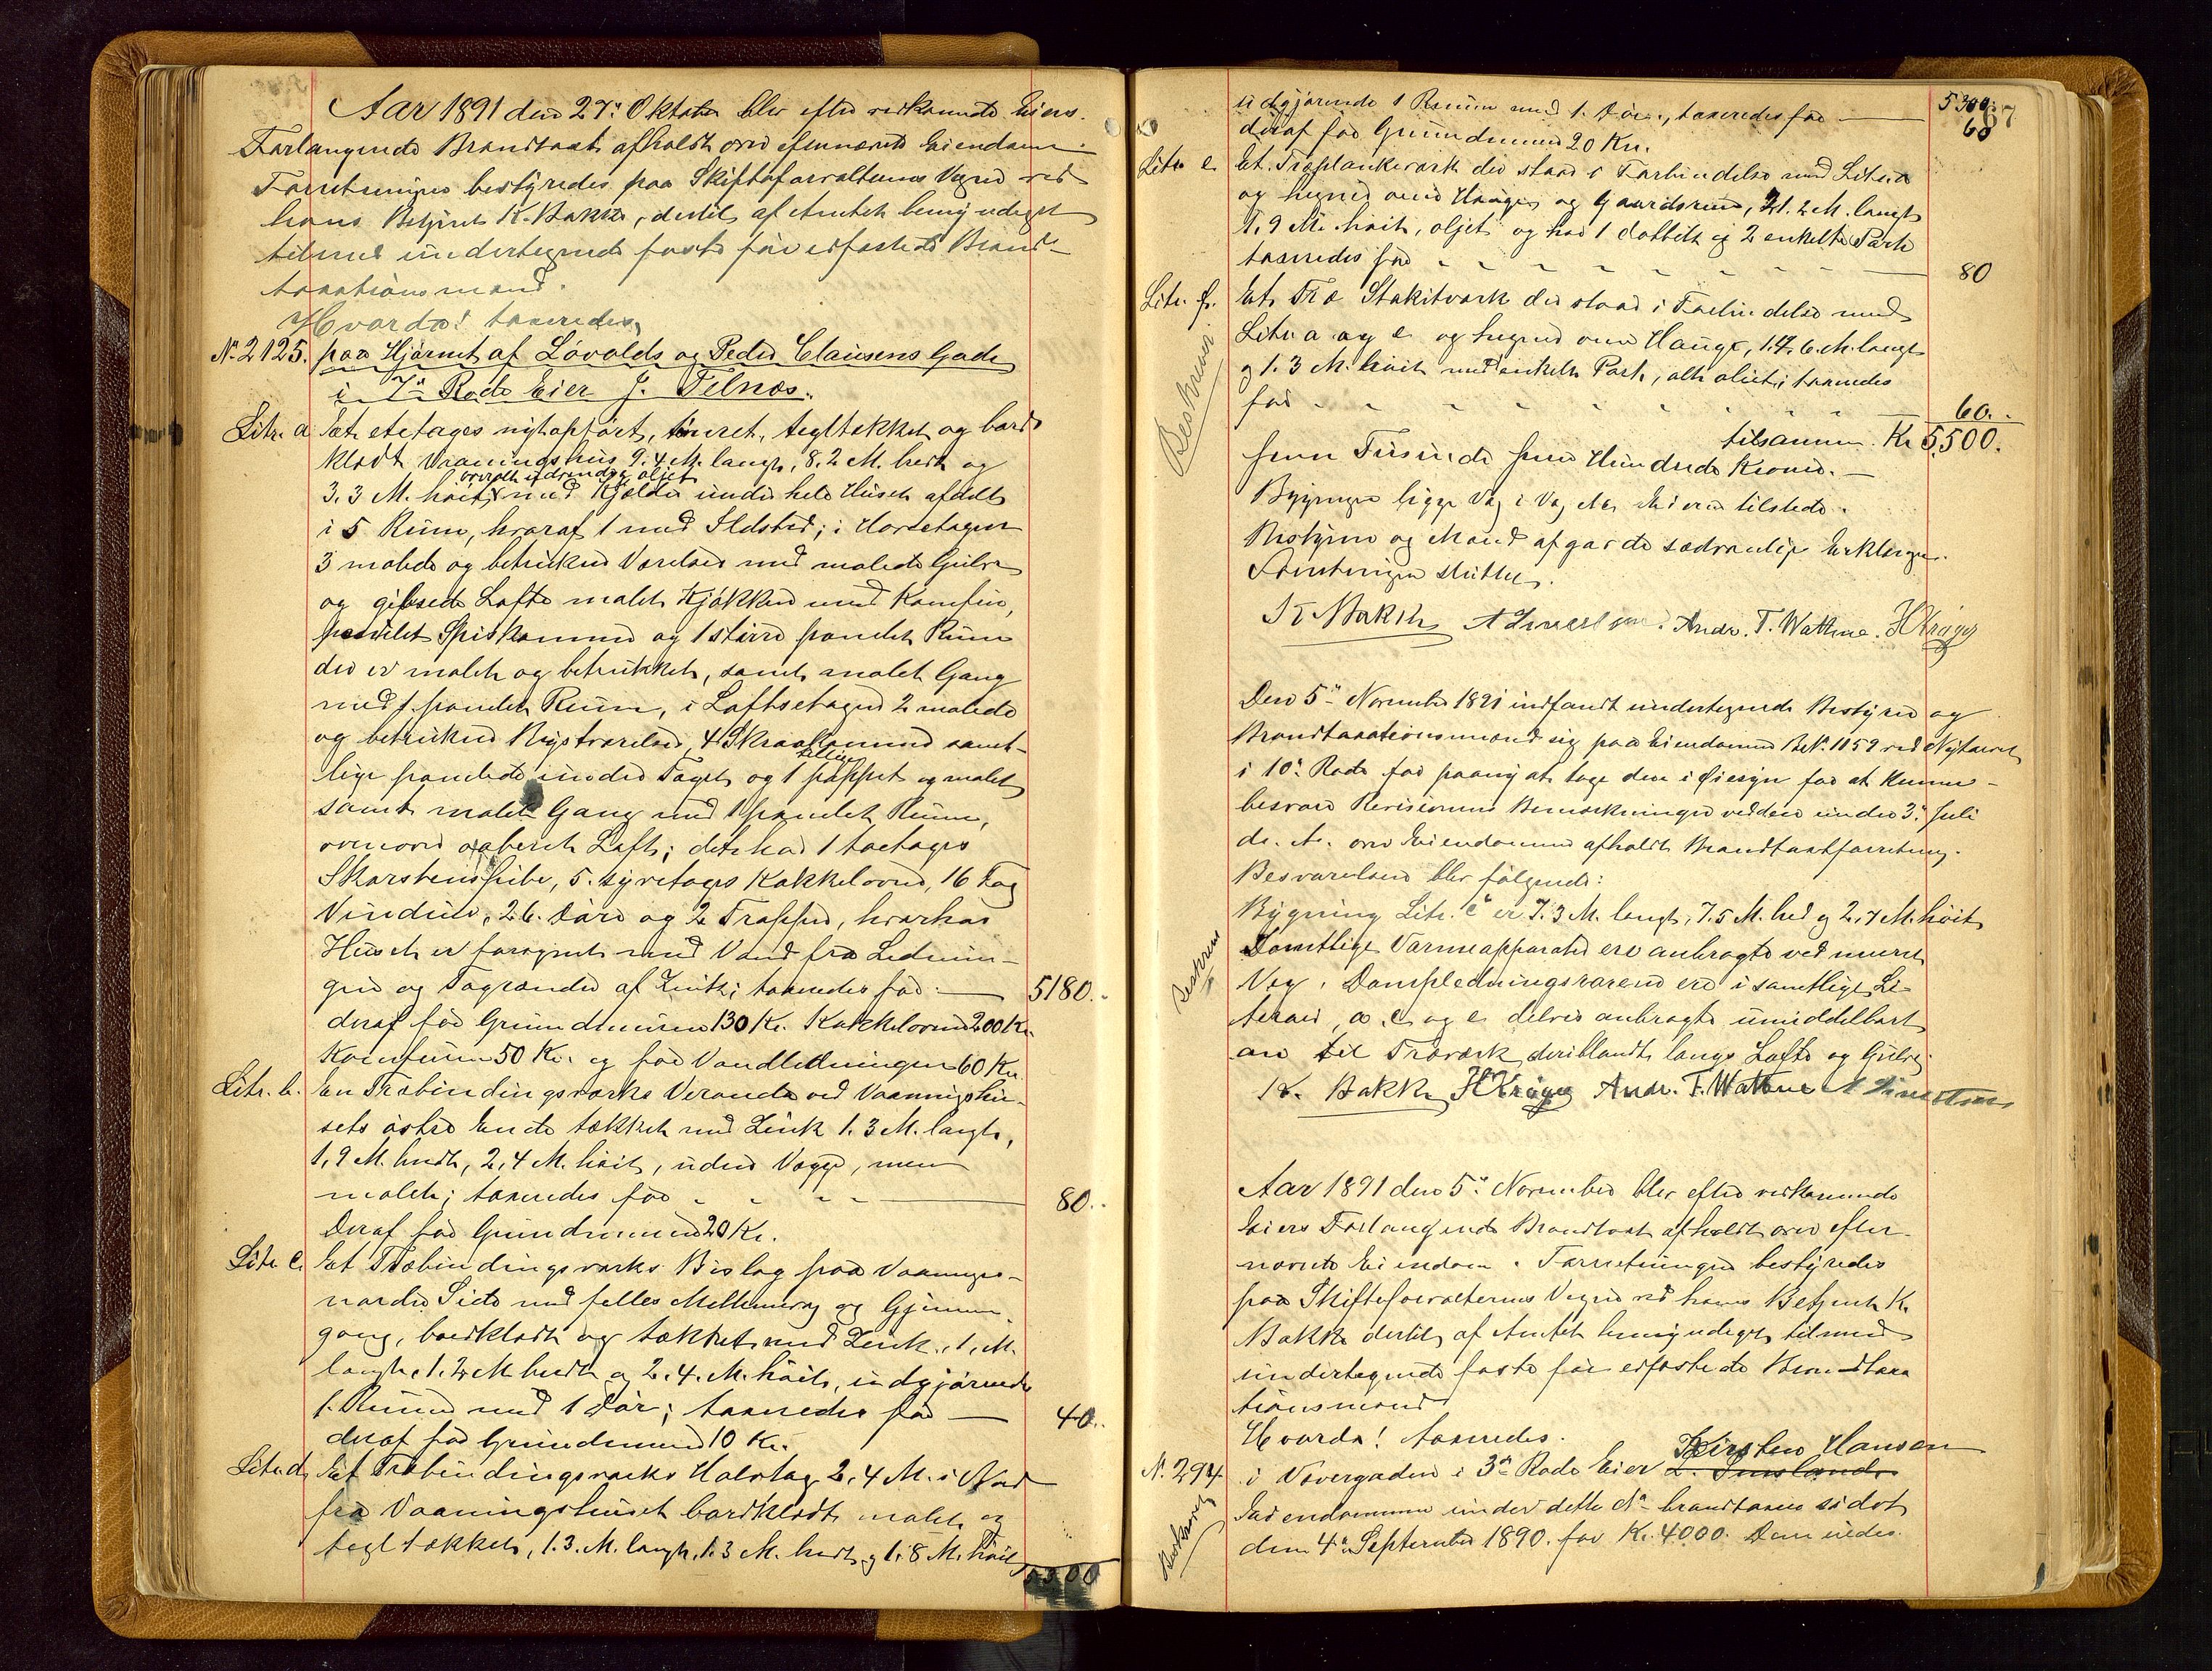 Aar 1891 den 27de Oktober blev efter vedkommende Eiers
Forlangende Brandtaxt afholdt over efternævnte Eiendom.
Forretningen bestyredes paa Skifteforvalterens Vegne ved
hans Betjent K. Bakke, dertil af Amtet bemyndiget
tilmed undertegnede faste for edfæstede Brand-
taxationsmænd.
Hvorda! taxeredes,
No. 2125. paa Hjørnet af Løvolds og Peder Clausens Gade
i 7de Rode Eier J. Telnæs.
Litr. a Et etetages nyt opført, tømret, tegltækket og bord-
klædt Vaaningshus 9.4 M. langt, 8.2 M. bredt og
overalt udvendig oljet
3.3 M. høit, med Kjelder under hele Huset afdelt
i 5 Rum, hvoraf 1 med Ildsted; i Hovedetagen
3 malede og betrukne Værelser med malede Gulve
og gibsede Lofte malet Kjøkken med Komfur,
panelet Spiskammer og 1 større panelet Rum
der er malet og betrukket, samt malet Gang
med 1 panelet Rum, i Loftsetagen 2 malede
og betrukne Kvistværelser, 4 Skraakammer samt-
lige panelede under Taget og 1 pappet og malet
samt malet Gang med 1 panelet Rum,
ovenover aabent Loft; det har 1 toetages
Skorstenspibe, 5 syvetages Kakkelovne, 16 Fag
Vinduer, 26 Døre og 2 Trapper, hvorhos
Huset er forsynet med Vand fra Lednin-
gen og Tagrender af Zink; taxeredes for — 5180.
deraf for Grundmuren 130 Kr. Kakkelovne 200 Kr.
Komfuren 50 Kr. og for Vandledningen 60 Kr.
Litr. b. En Træbindingsværks Veranda ved Vaaningshu-
sets østre Ende tækket med Zink 1.3 M. langt,
1,9 M. bredt, 2,4 M. høit, uden Vægge, men
malet; taxeredes for — 80.
Deraf for Grundmuren 20 Kr.
Litr. c. Et Træbindingsværks Bislag paa Vaaningens
nordre Side med fælles Mellemvæg og Gjennem-
gang, bordklædt og tækket med Zink, 1, M.
langt, 1.2 M bredt og 2.4. M. høit, udgjørende
1. Rum med 1 Dør; taxeredes for — 40.
deraf for Grundmuren 10 Kr.
Litr. d. Et Træbindingsværks Halvtag 2,4 M. i Nord
fra Vaaningshuset bordklædt malet og
tegltækket, 1.3. M. langt, 1.3 M. bredt og 1.8 M. høit
5300
67
udgjørende 1 Rum med 1 Dør, taxeredes for — 5300
60
deraf for Grundmuren 20 Kr.
Litr. e. Et Træplankeværk der staar i Forbindelse med Litr. a
og hegner om Hauge og Gaardsrum, 21.2 M. langt
1,9 M. høit, oljet og har 1 dobbelt og 2 enkelte Porte
taxeredes for — 80
Litr. f. Et Træ Stakitværk der staar i Forbindelse med
Litra a og e og hegner om Hauge, 17,6. M. langt
og 1.3 M. høit med enkelt Port, alt oljet; taxeredes
for — 60.
Beskrevet
tilsammen Kr 5,500.
fem Tusinde fem Hundrede Kroner. —
Bygningen ligge Væg i Væg Nei. Eieren tilstede.
Bestyrer og Mænd afgav de sædvanlige Erklæringer.
Forretningen sluttet.
K Bakke Andr. T. Wathne. H Krøger
Den 5te November 1891 indfandt undertegnede Bestyrer og
Brandtaxationsmænd sig paa Eiendommen Be No. 1159 ved Nytorvet
i 10de Rode for paany at tage den i Øiesyn for at kunne
besvare Revisionens Bemærkninger ved den under 3de Juli
d. A. over Eiendommen afholdte Brandtaxtforretning.
Besvarelsen blev følgende:
Bygning Litr. c er 7.3 M. langt, 7.5 M. bred og 2.7 M. høit
Samtlige Varmeapparater ere anbragte ved muret
Væg. Dampledningsrørene ere i samtlige Li-
teraer, a, c og e delvis anbragte umiddelbart
an til Træværk deriblandt langs Lofte og Gulve.
Beskrevet
K. Bakke H Krøger Andr. T. Wathne
Aar 1891 den 5te November blev efter vedkommende
Eiers Forlangende Brandtaxt afholdt over efter-
nævnte Eiendom. Forretningen bestyredes
paa Skifteforvalterens Vegne ved hans Betjent K.
Bakke dertil af Amtet bemyndiget tilmed
undertegnede faste for edfæstede Brandtaxa
tionsmænd
Hvorda! taxeredes.
Kirsten Hansen
No. 294. i Vævergaden i 3de Rode Eier
Eiendommen under dette No. brandtaxeredes sidst
den 4de September 1890. for Kr. 4000. Den nedre
Beskrevet